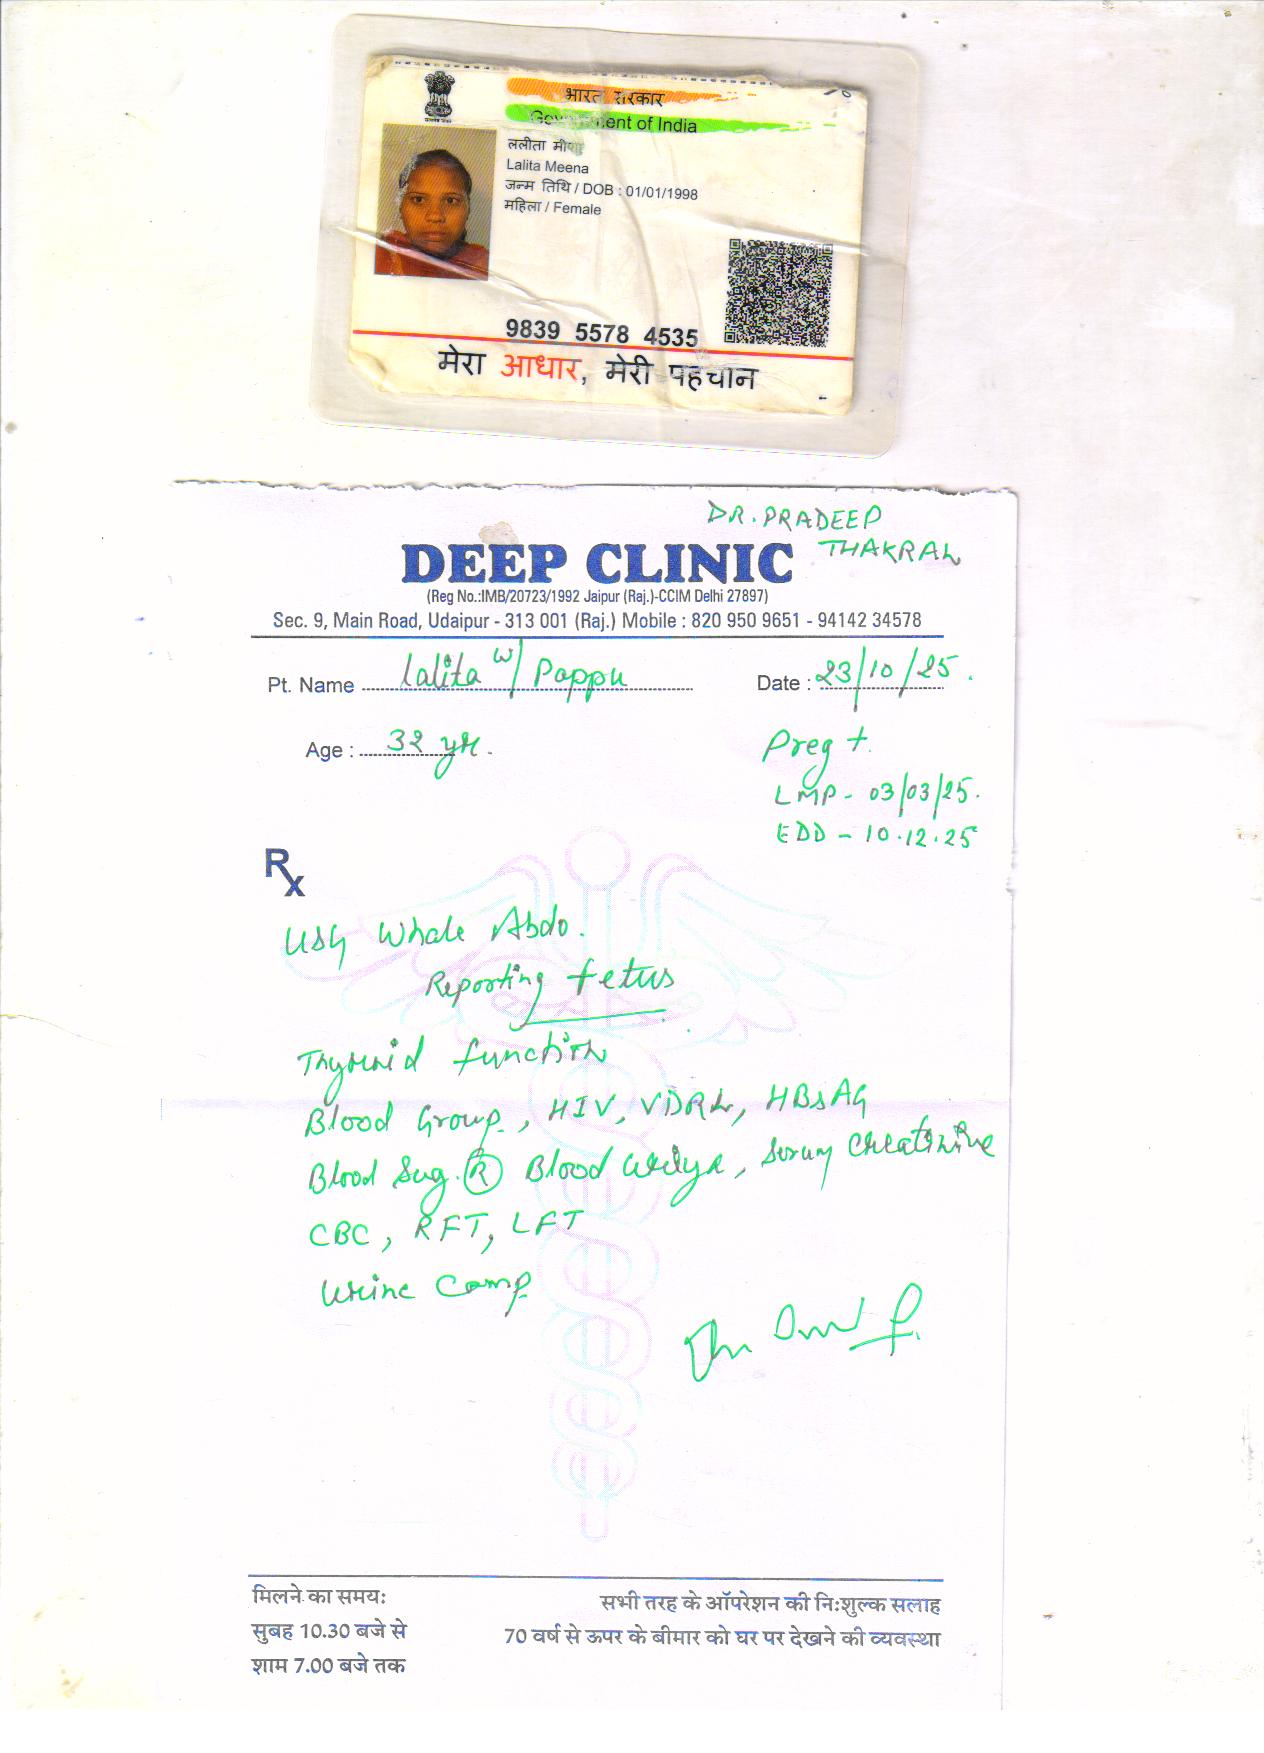 भारत सरकार
Government of India
ललीता मीणा
Lalita Meena
जन्म तिथि / DOB : 01/01/1998
महिला / Female
9839 5578 4535
मेरा आधार, मेरी पहचान
DR. PRADEEP
THAKRAL
DEEP CLINIC
(Reg No.:IMB/20723/1992 Jaipur (Raj.)-CCIM Delhi 27897)
Sec. 9, Main Road, Udaipur - 313 001 (Raj.) Mobile : 820 950 9651 - 94142 34578
Pt. Name Lalita w/ Pappu Date : 23/10/25.
Age : 32 yr. Preg +.
LMP - 03/03/25.
EDD - 10.12.25
Rx
USG Whole Abdo.
Reporting fetus
Thyroid function
Blood Group, HIV, VDRL, HBsAG
Blood Sug. (R) Blood Urea, Serum Creatinine
CBC, RFT, LFT
Urine Comp.
मिलने का समय: सभी तरह के ऑपरेशन की नि:शुल्क सलाह
सुबह 10.30 बजे से 70 वर्ष से ऊपर के बीमार को घर पर देखने की व्यवस्था
शाम 7.00 बजे तक